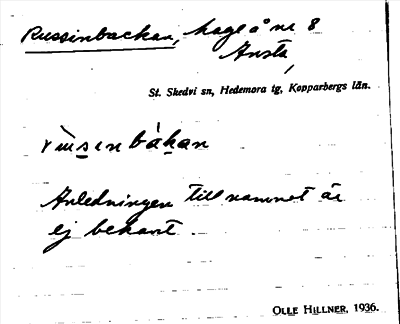 Russinbackan, hage å nr 8
Ansta,
St. Skedvi sn, Hedemora tg, Kopparbergs län.
rùsenbákan
Anledningen till namnet är
ej bekant.
OLLE HILLNER, 1936.